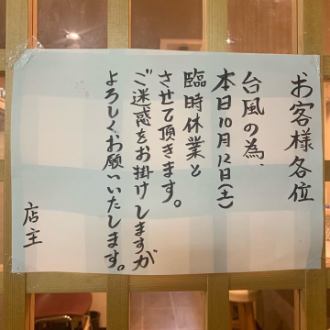 お客様各位
台風の為、
本日10月12日(土)
臨時休業と
させて頂きます。
ご迷惑をお掛けしますが
よろしくお願いいたします。
店主